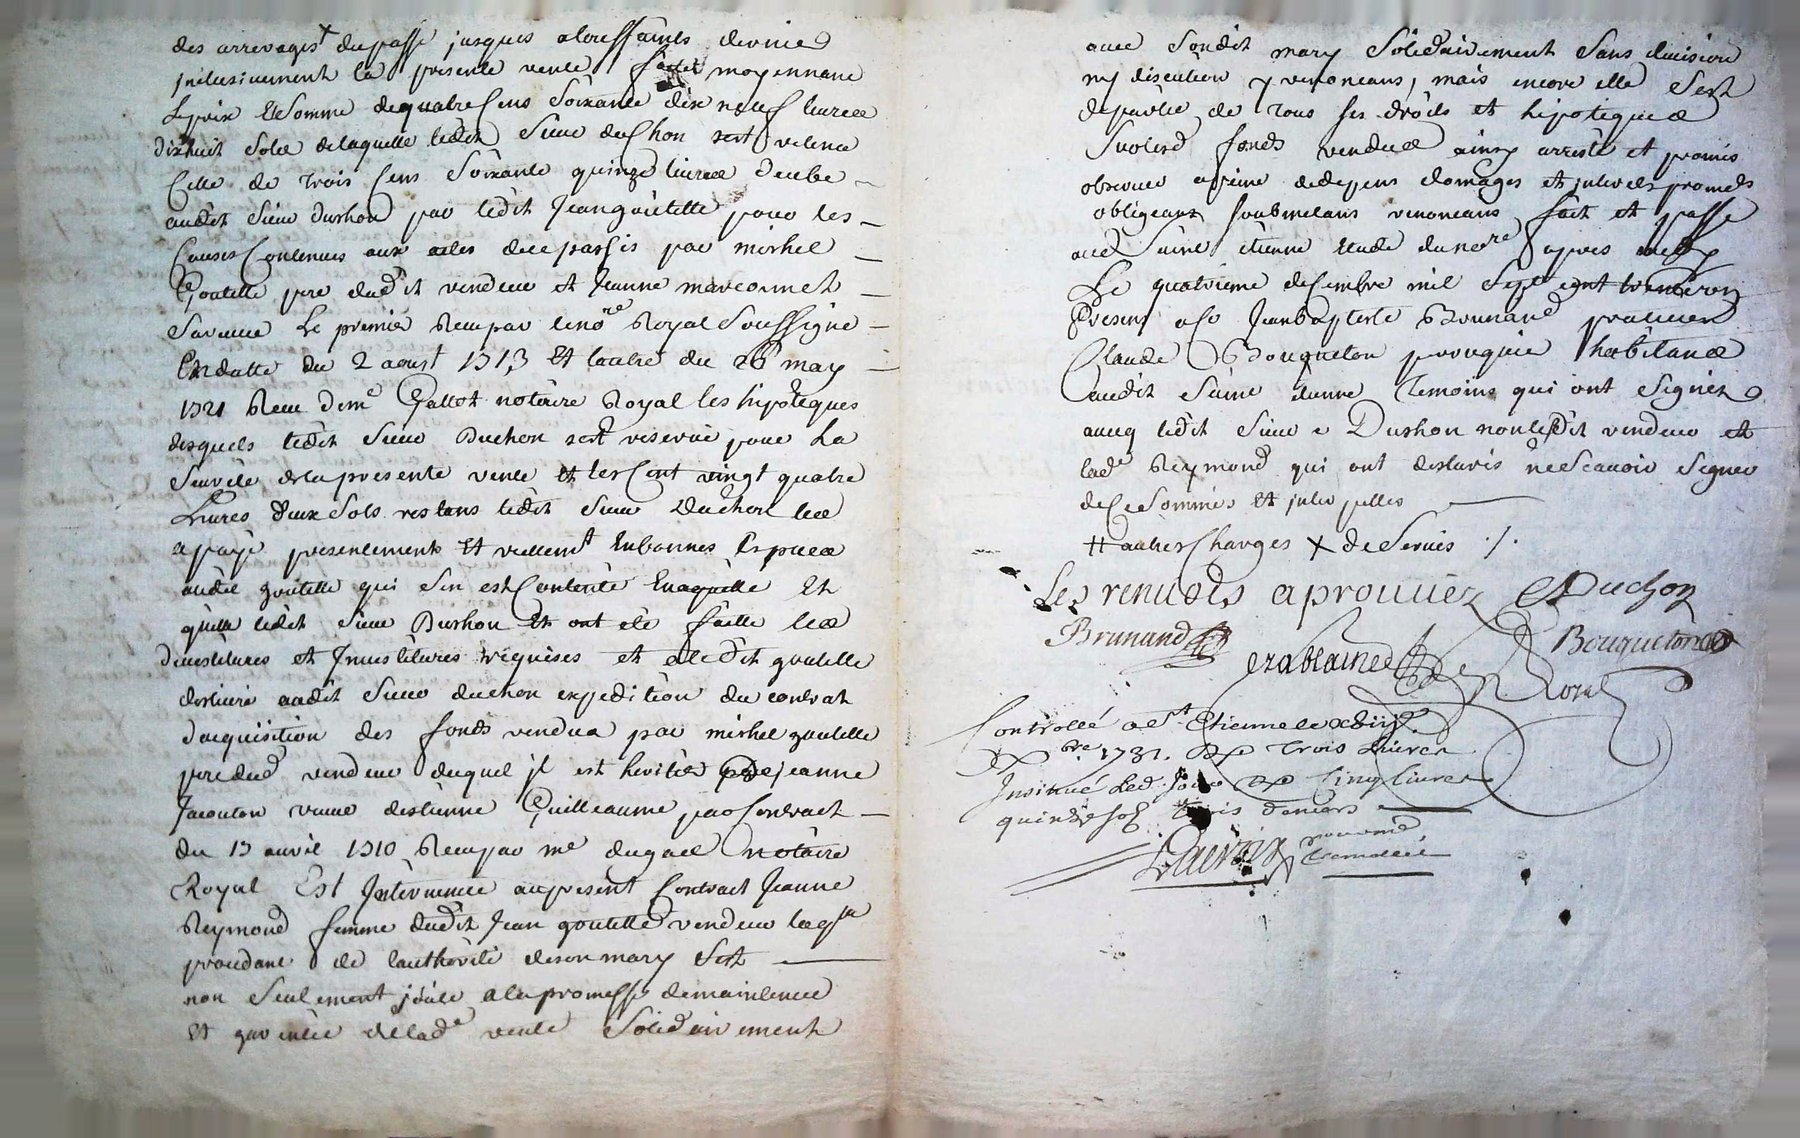 des arrerages + du passé jusques a la St Saints dernier
inclusivement la presente vente faite moyennant
le prix et somme de quatre cens soixante dix neuf livres
dixhuit sols de laquelle ledit sieur duchon sest retenu
celle de trois cens soixante quinze livres deube
audit sieur duchon par ledit Jean goutelle pour les
causes contenues aux actes passés par michel
Goutelle pere dudit vendeur et Jeanne marconnet
sa femme le premier Receu par le nore Royal soussigné
en datte du 2 aoust 1713 et lautre du 26 may
1721 Receu de me Gallot notaire Royal les hipoteques
desquels ledit sieur Duchon sest reservé pour la
sureté de la presente vente et les cent vingt quatre
livres deux sols restans ledit sieur Duchon les
a payé presentement et reellemt en bonnes especes
audit goutelle qui sen est contenté en a quitté et
quitte ledit sieur Duchon et ont été faitte les
devestitures et Investitures requises et a ledit goutelle
deslivré audit sieur duchon expedition du contrat
dacquisition des fonds vendus par michel goutelle
pere dud vendeur duquel il est heritier de jeanne
Jacouton veuve destienne Guilleaume par contract
du 13 avril 1710 Receu par me duguet notaire
Royal Est Intervenue au present contract Jeanne
Reymond femme dudit Jean goutelle vendeur laqlle
procedant de lauthorité de son mary sest
non seulement jointe a la promesse de maintenue
et garentie de lade vente solidairement
avec sondit mary solidairement sans division
ny discution y renonceans, mais encore elle sest
departie de tous ses droits et hipoteques
sur lesd fonds vendus ainsy arresté et promis
observer a peine de depens domages et interests promets
obligeans soubmetans renonceans fait et passé
aud Saint etienne etude du nore apres midy
Le quatrieme decembre mil sept cent trente un
Presens a ce Jean Baptiste Brunand praticien
Claude Bouqueton perruquier habitans
audit Saint etienne temoins qui ont signéz
avecq ledit sieur Duchon non ledit vendeur et
lade Reymond qui ont declarés ne scavoir signer
de ce sommés et interpellés
++ autres charges + de servis ./.
Les renvoÿes aprouviez Duchon
Brunand Bouqueton
Controllé a St Etienne le xviije
xbre 1731. R Trois Livres
Insinué led. jour R cinq livres
quinze sol trois deniers